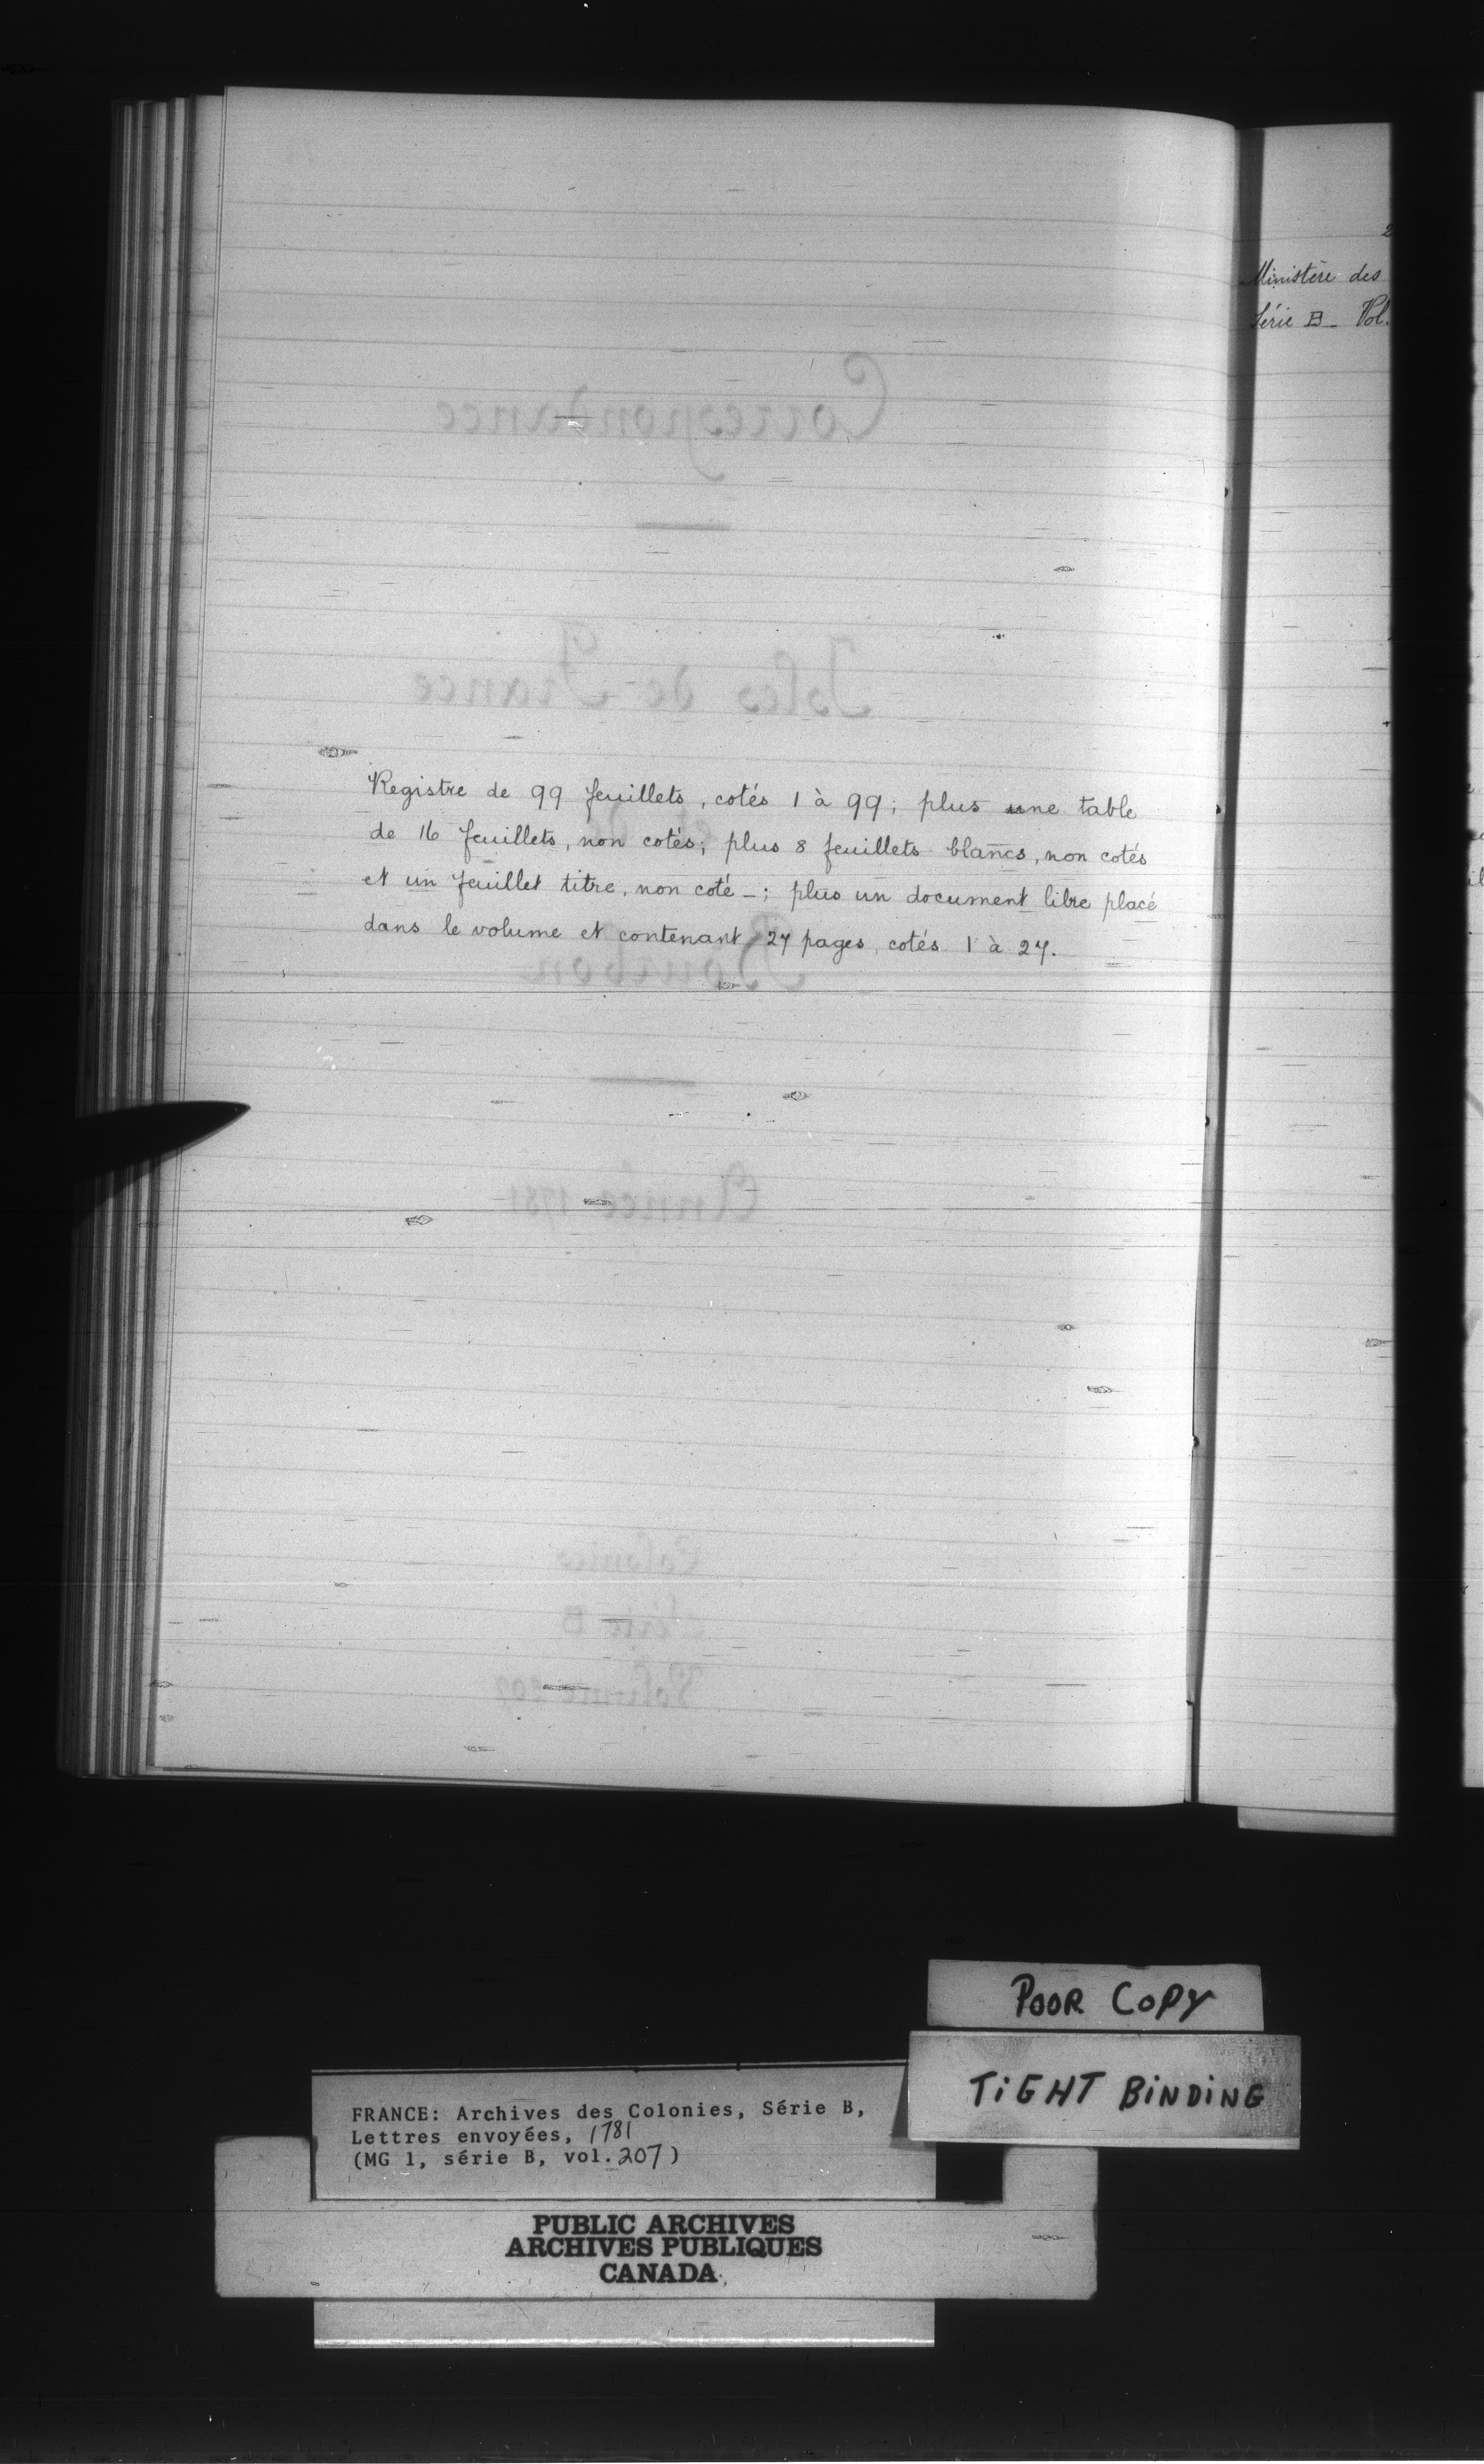 Registre de 99 feuillets, cotés 1 à 99; plus une table
de 16 feuillets, non cotés; plus 8 feuillets blancs, non cotés
et un feuillet titre, non coté -; plus un document libre placé
dans le volume et contenant 27 pages, cotés 1 à 27.
Correspondance
Isles de France
et de
Bourbon
Année 1781
Colonies
Série B
Volume 207
Ministère des
Série B - Vol.
POOR COPY
TIGHT BINDING
FRANCE: Archives des Colonies, Série B,
Lettres envoyées, 1781
(MG 1, série B, vol. 207)
PUBLIC ARCHIVES
ARCHIVES PUBLIQUES
CANADA